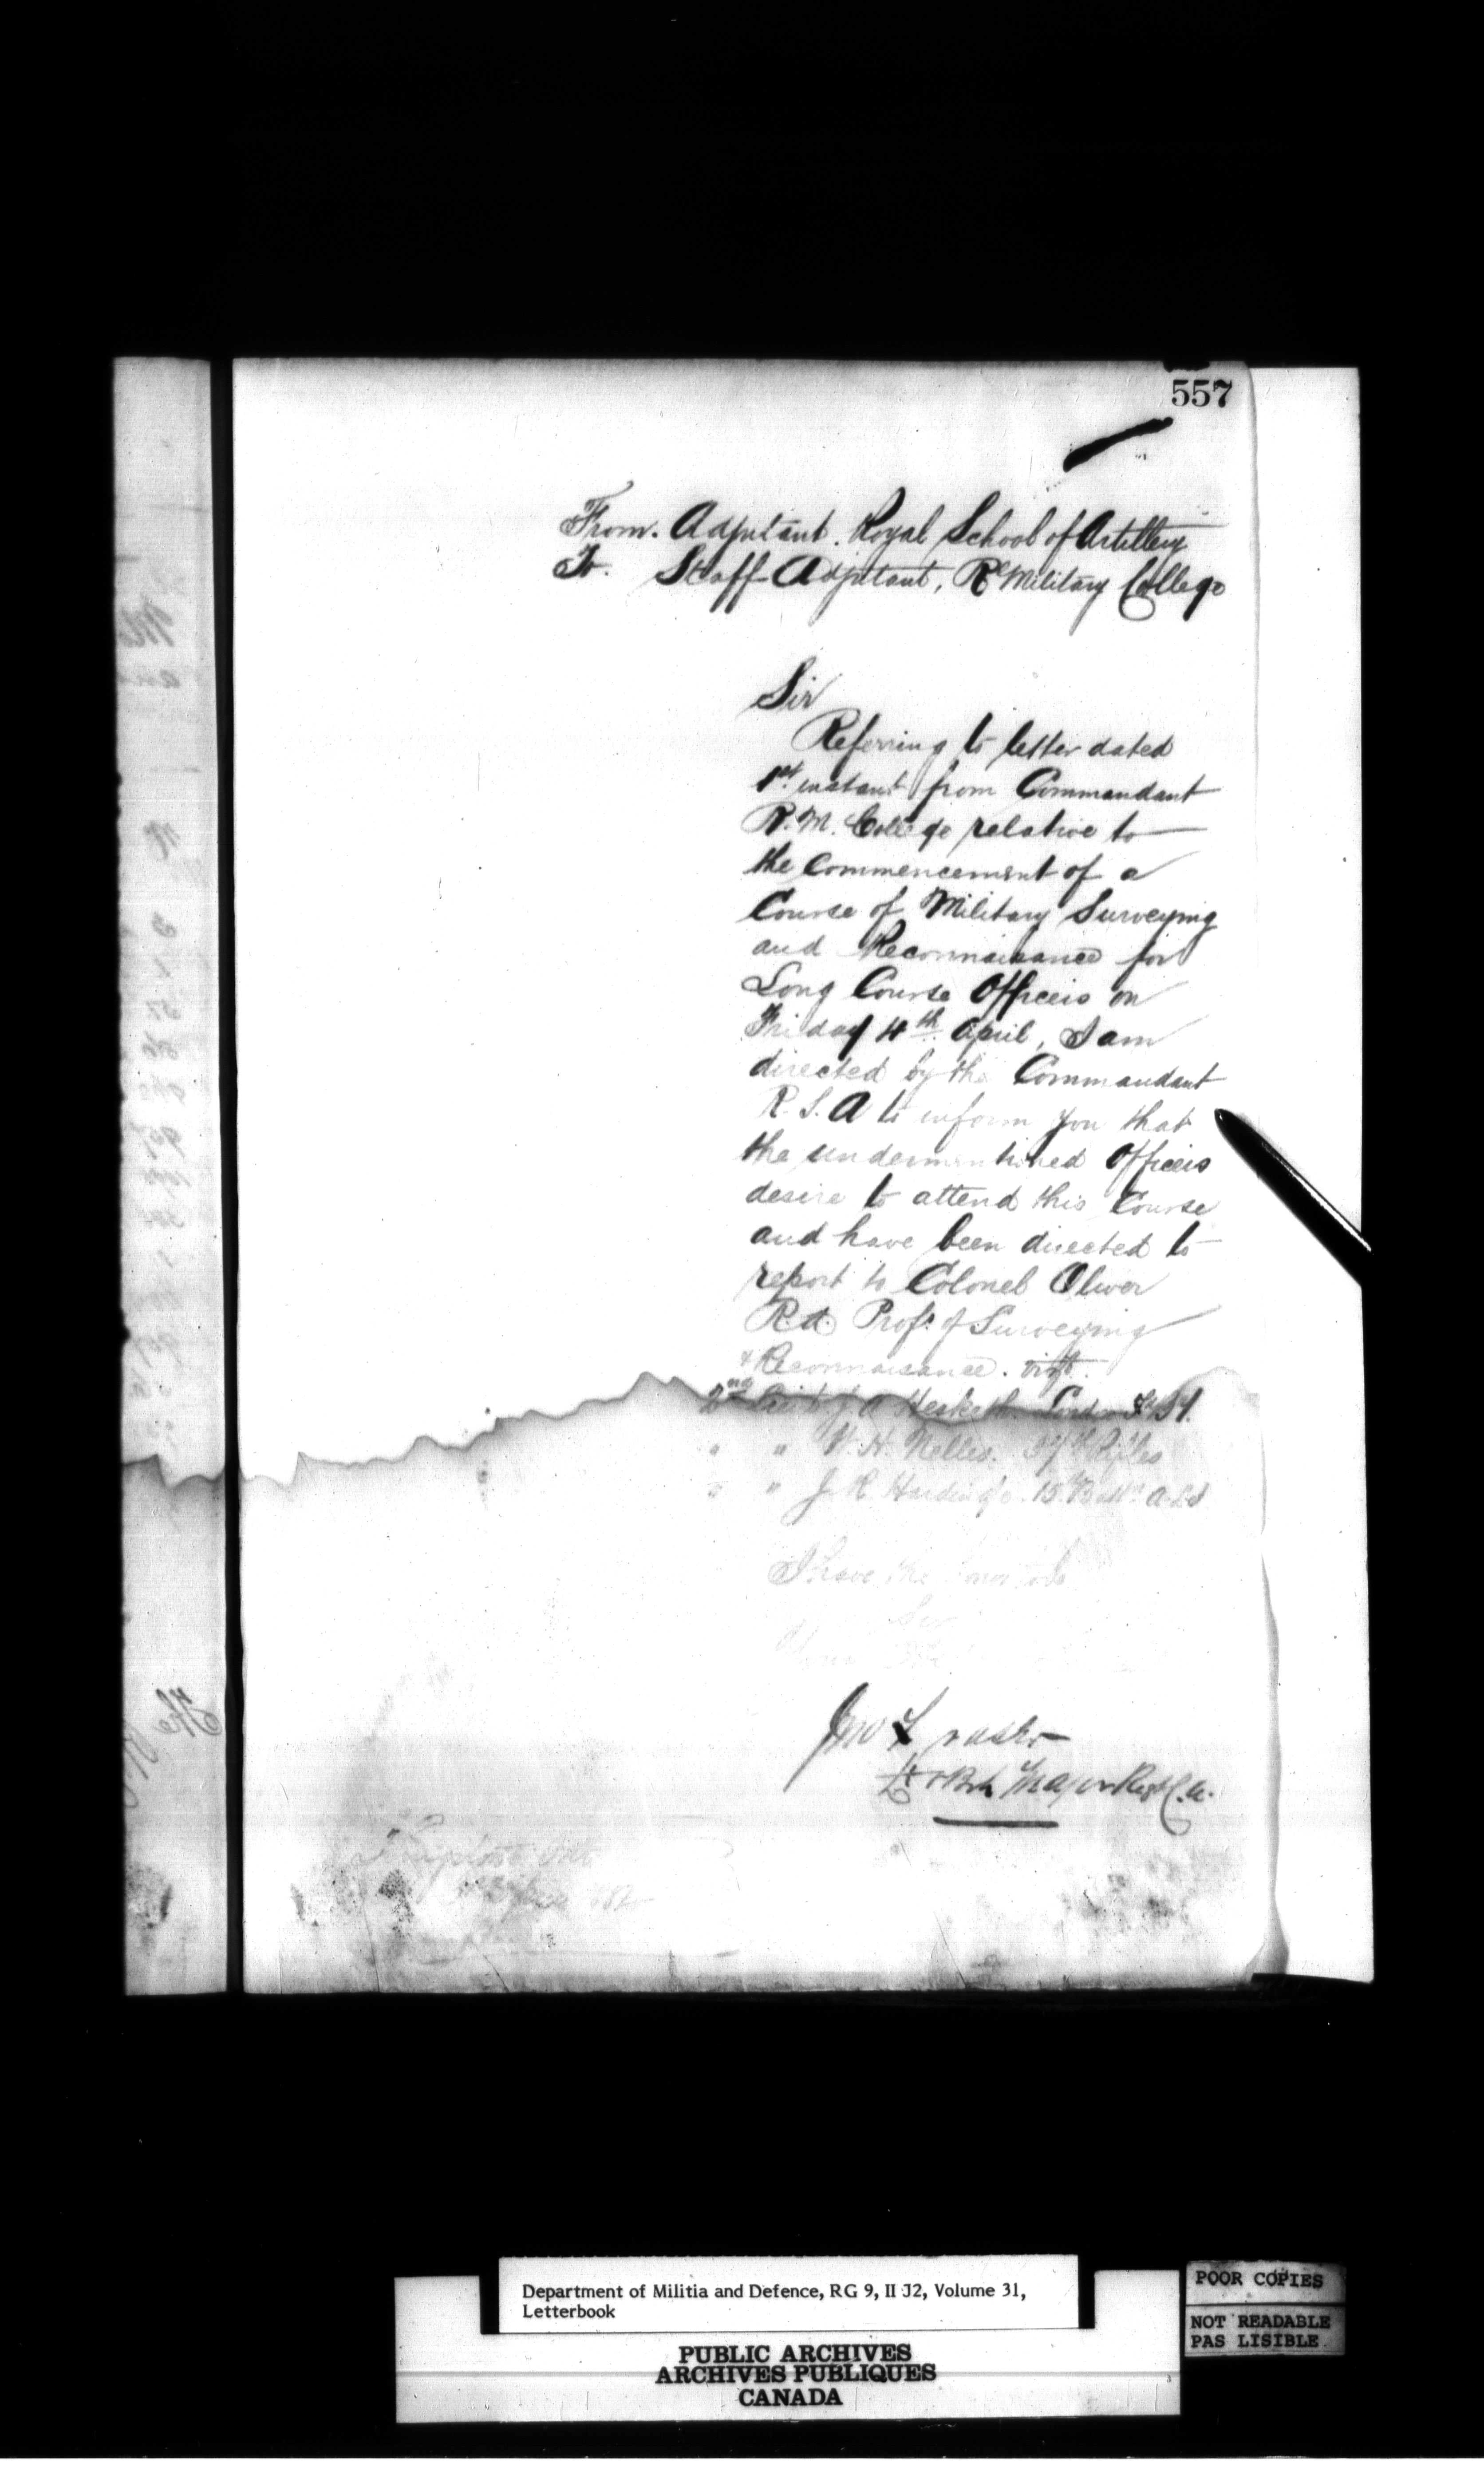 557
From. Adjutant. Royal School of Artillery
To. Staff Adjutant, Rl Military College
Sir
Referring to letter dated
1st instant from Commandant
R. M. College relative to
the Commencement of a
Course of Military Surveying
and Reconnaissance for
Long Course Officers on
Friday 4th April, I am
directed by the Commandant
R. S. A to inform you that
the undermentioned Officers
desire to attend this Course
and have been directed to
report to Colonel Oliver
R.A. Prof. of Surveying
& Reconnaissance. vizt.
2nd Lieut J A Hesketh.
" " W. H. Nelles. Rifles
" " J. R. 15 Battn A.L.I
I have the honor to be
Sir
Major Regt C.A.
Department of Militia and Defence, RG 9, II J2, Volume 31,
Letterbook
PUBLIC ARCHIVES
ARCHIVES PUBLIQUES
CANADA
POOR COPIES
NOT READABLE
PAS LISIBLE